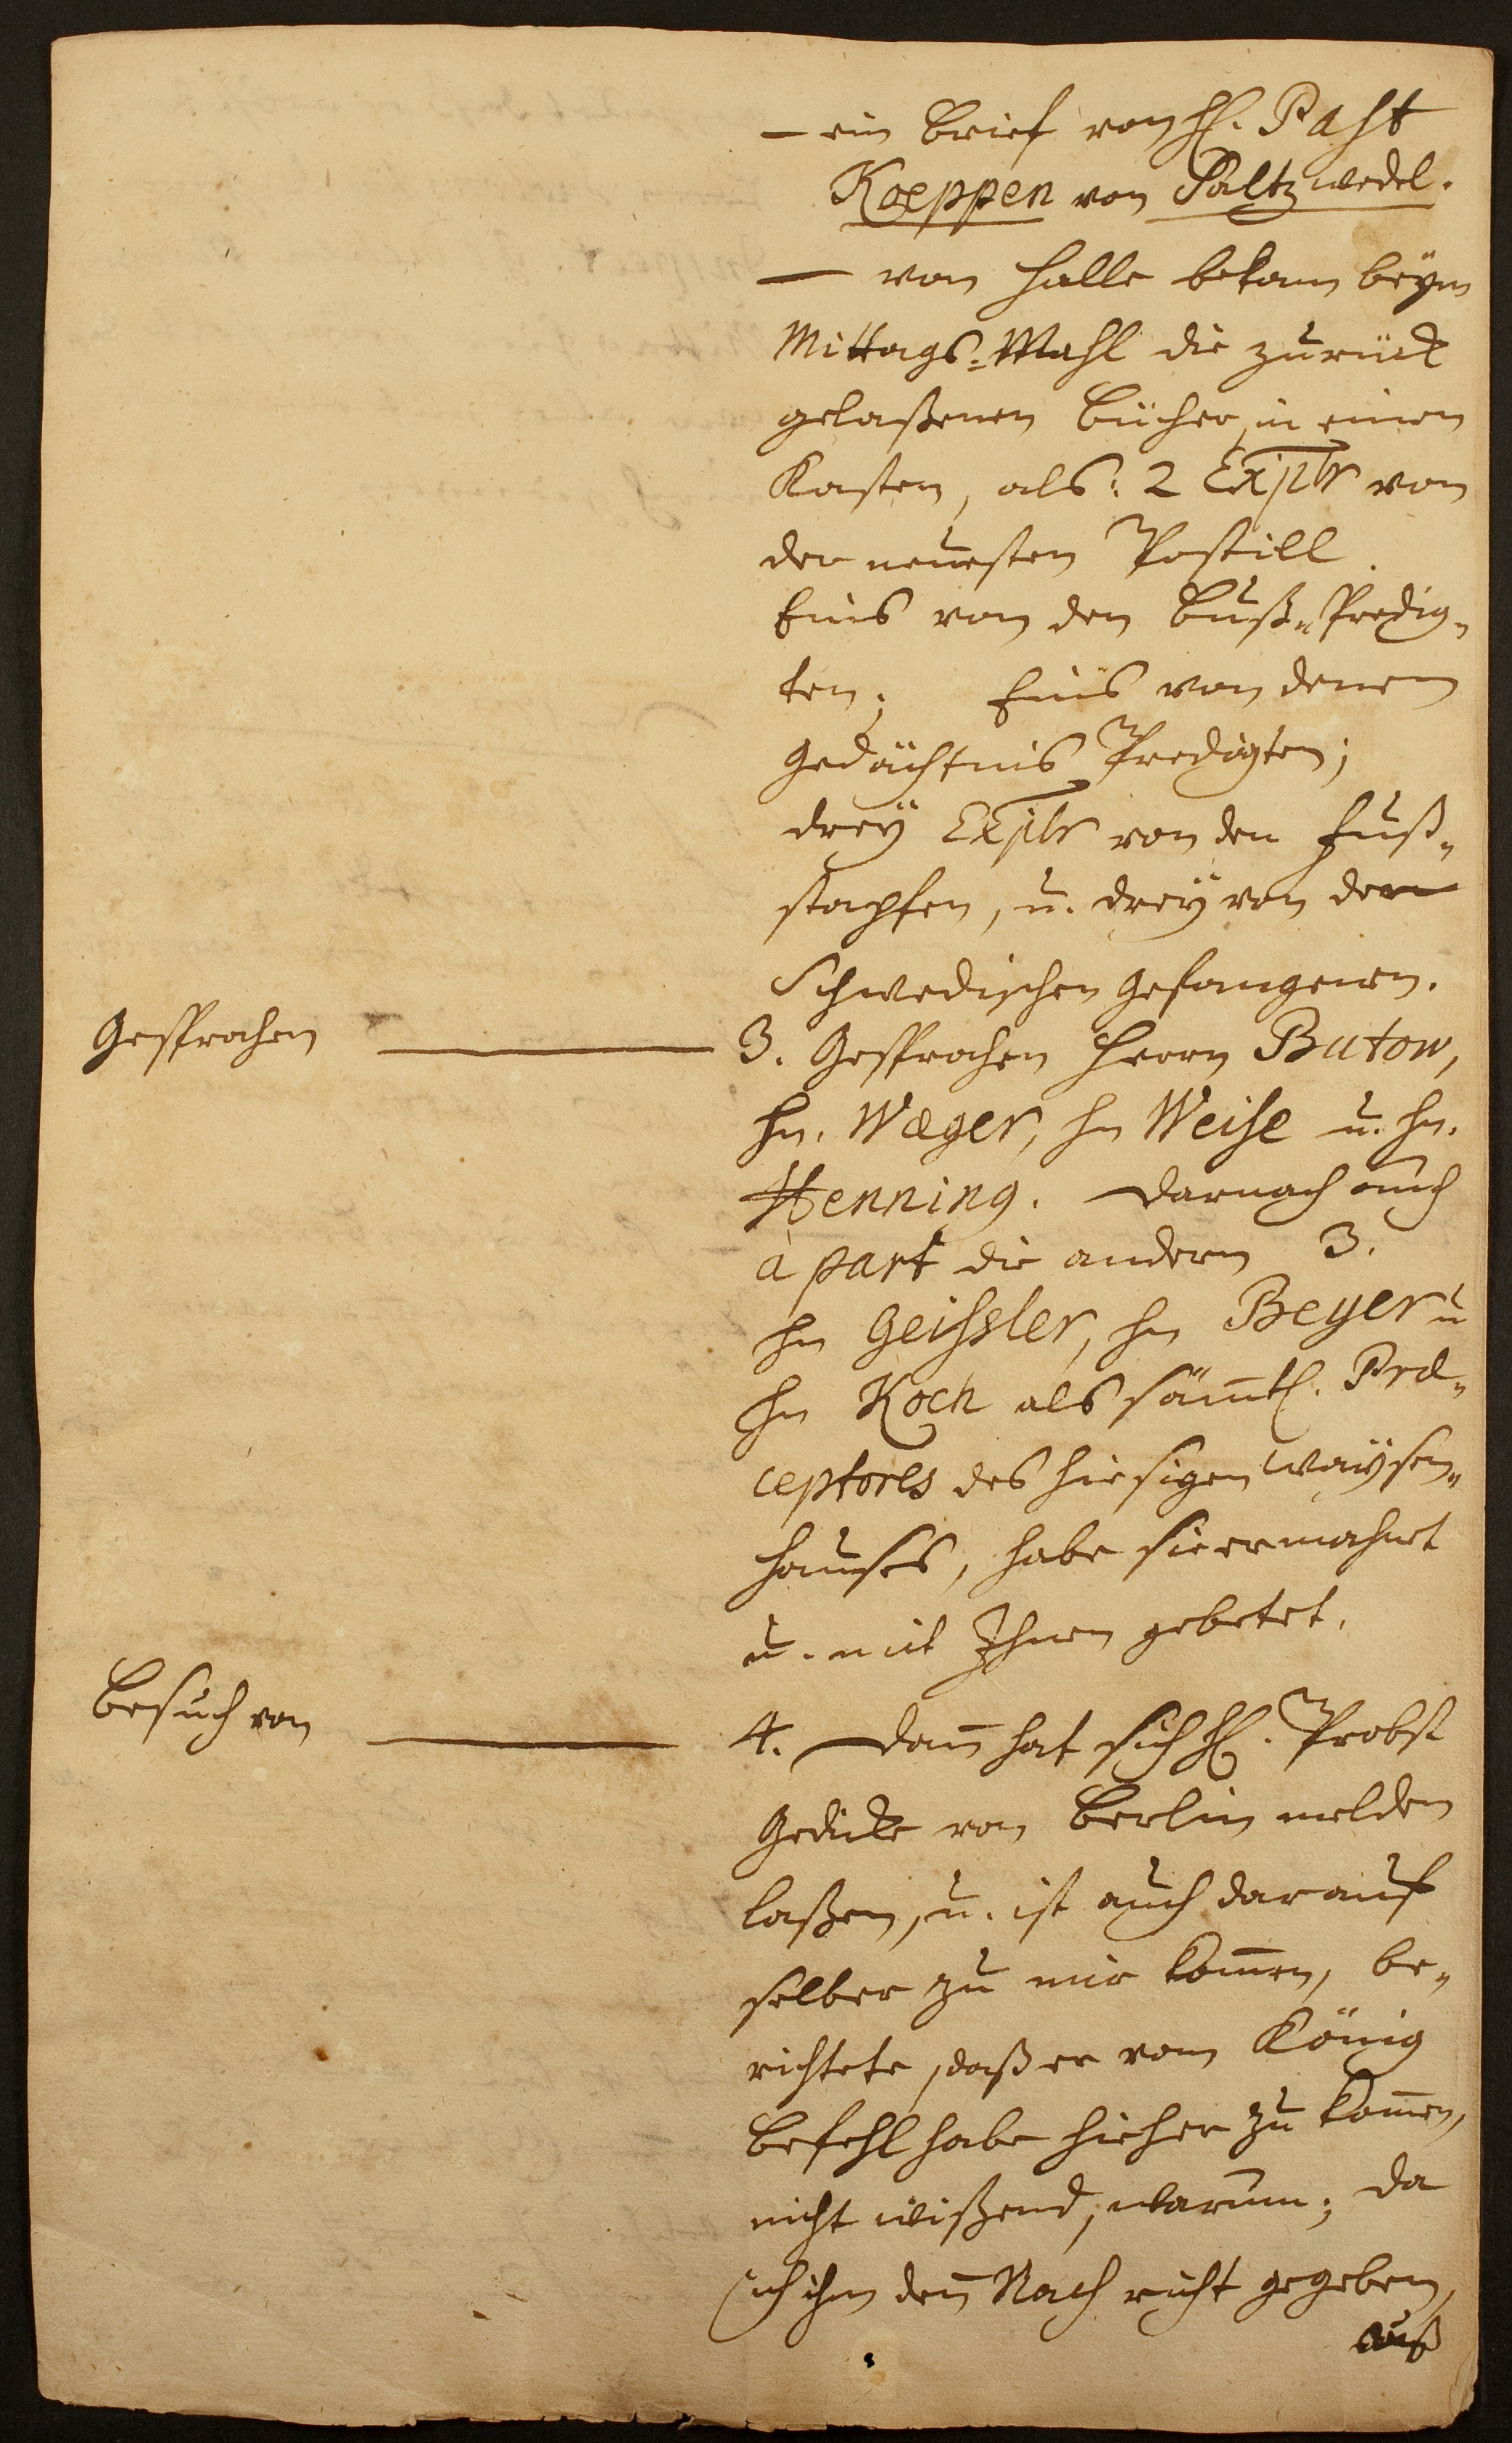 – ein Brief von H. Past
Koeppen von Saltzwedel.
– von Halle bekam beym
Mittags-Mahl die zurück
gelaßenen Bücher, in einem
Kasten, als: 2 Explr von
der neuesten Postill.
Eins von den Buß-Predig-
ten; Eins von denen
Gedächtnis Predigten;
dreÿ Explr von den Fuß-
stapfen, u. dreÿ von den
Schwedischen Gefangenen.
Gesprochen
3. Gesprochen Herrn Butow,
Hn. Wæger, Hn Weise u. Hn.
Henning. darnach auch
à part die andern 3.
Hn Geissler, Hn Beyer u
Hn Koch als sämtl. Præ-
ceptores des hiesigen Waÿsen-
hauses, habe sie ermahnt
u. mit Ihnen gebetet.
Besuch von
4. dann hat sich H. Probst
Gedicke von Berlin melden
laßen, u. ist auch darauf
selber zu mir kommen, be-
richtete, daß er vom König
Befehl habe hieher zu kommen,
nicht wißend, warum; da
ich ihm denn Nachricht gegeben,